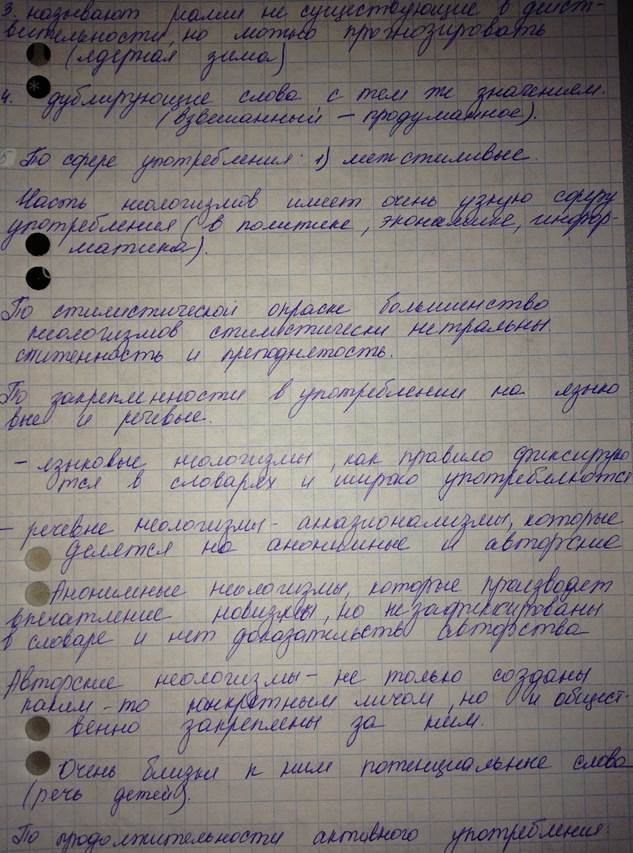 3. называют реалии не существующие в дейст-
вительности, но можно прогнозировать
(ядерная зима)
4. дублирующие слова с тем же значением.
(взвешанный – продуманное).
5 По сфере употребления: 1) межстилевые.
Часть неологизмов имеет очень узкую сферу
употребления (в политике, экономике, инфор-
матика).
По стилистической окраске большинство
неологизмов стилистически нетральны.
степенность и преподнятость.
По закрепленности в употреблении на языко
вые и речевые.
– языковые неологизмы, как правило фиксирую
тся в словарях и широко употребляются
– речевые неологизмы – акказионализмы, которые
делятся на анонимные и авторские
Анонимные неологизмы, которые производят
впечатление новизны, но не зафиксированы
в словаре и нет доказательств авторства
Авторские неологизмы – не только созданы
каким-то конкретным лицом, но и общест-
венно закреплены за ним.
Очень близки к ним потенциальные слова
(речь детей).
По продолжительности активного употребления: